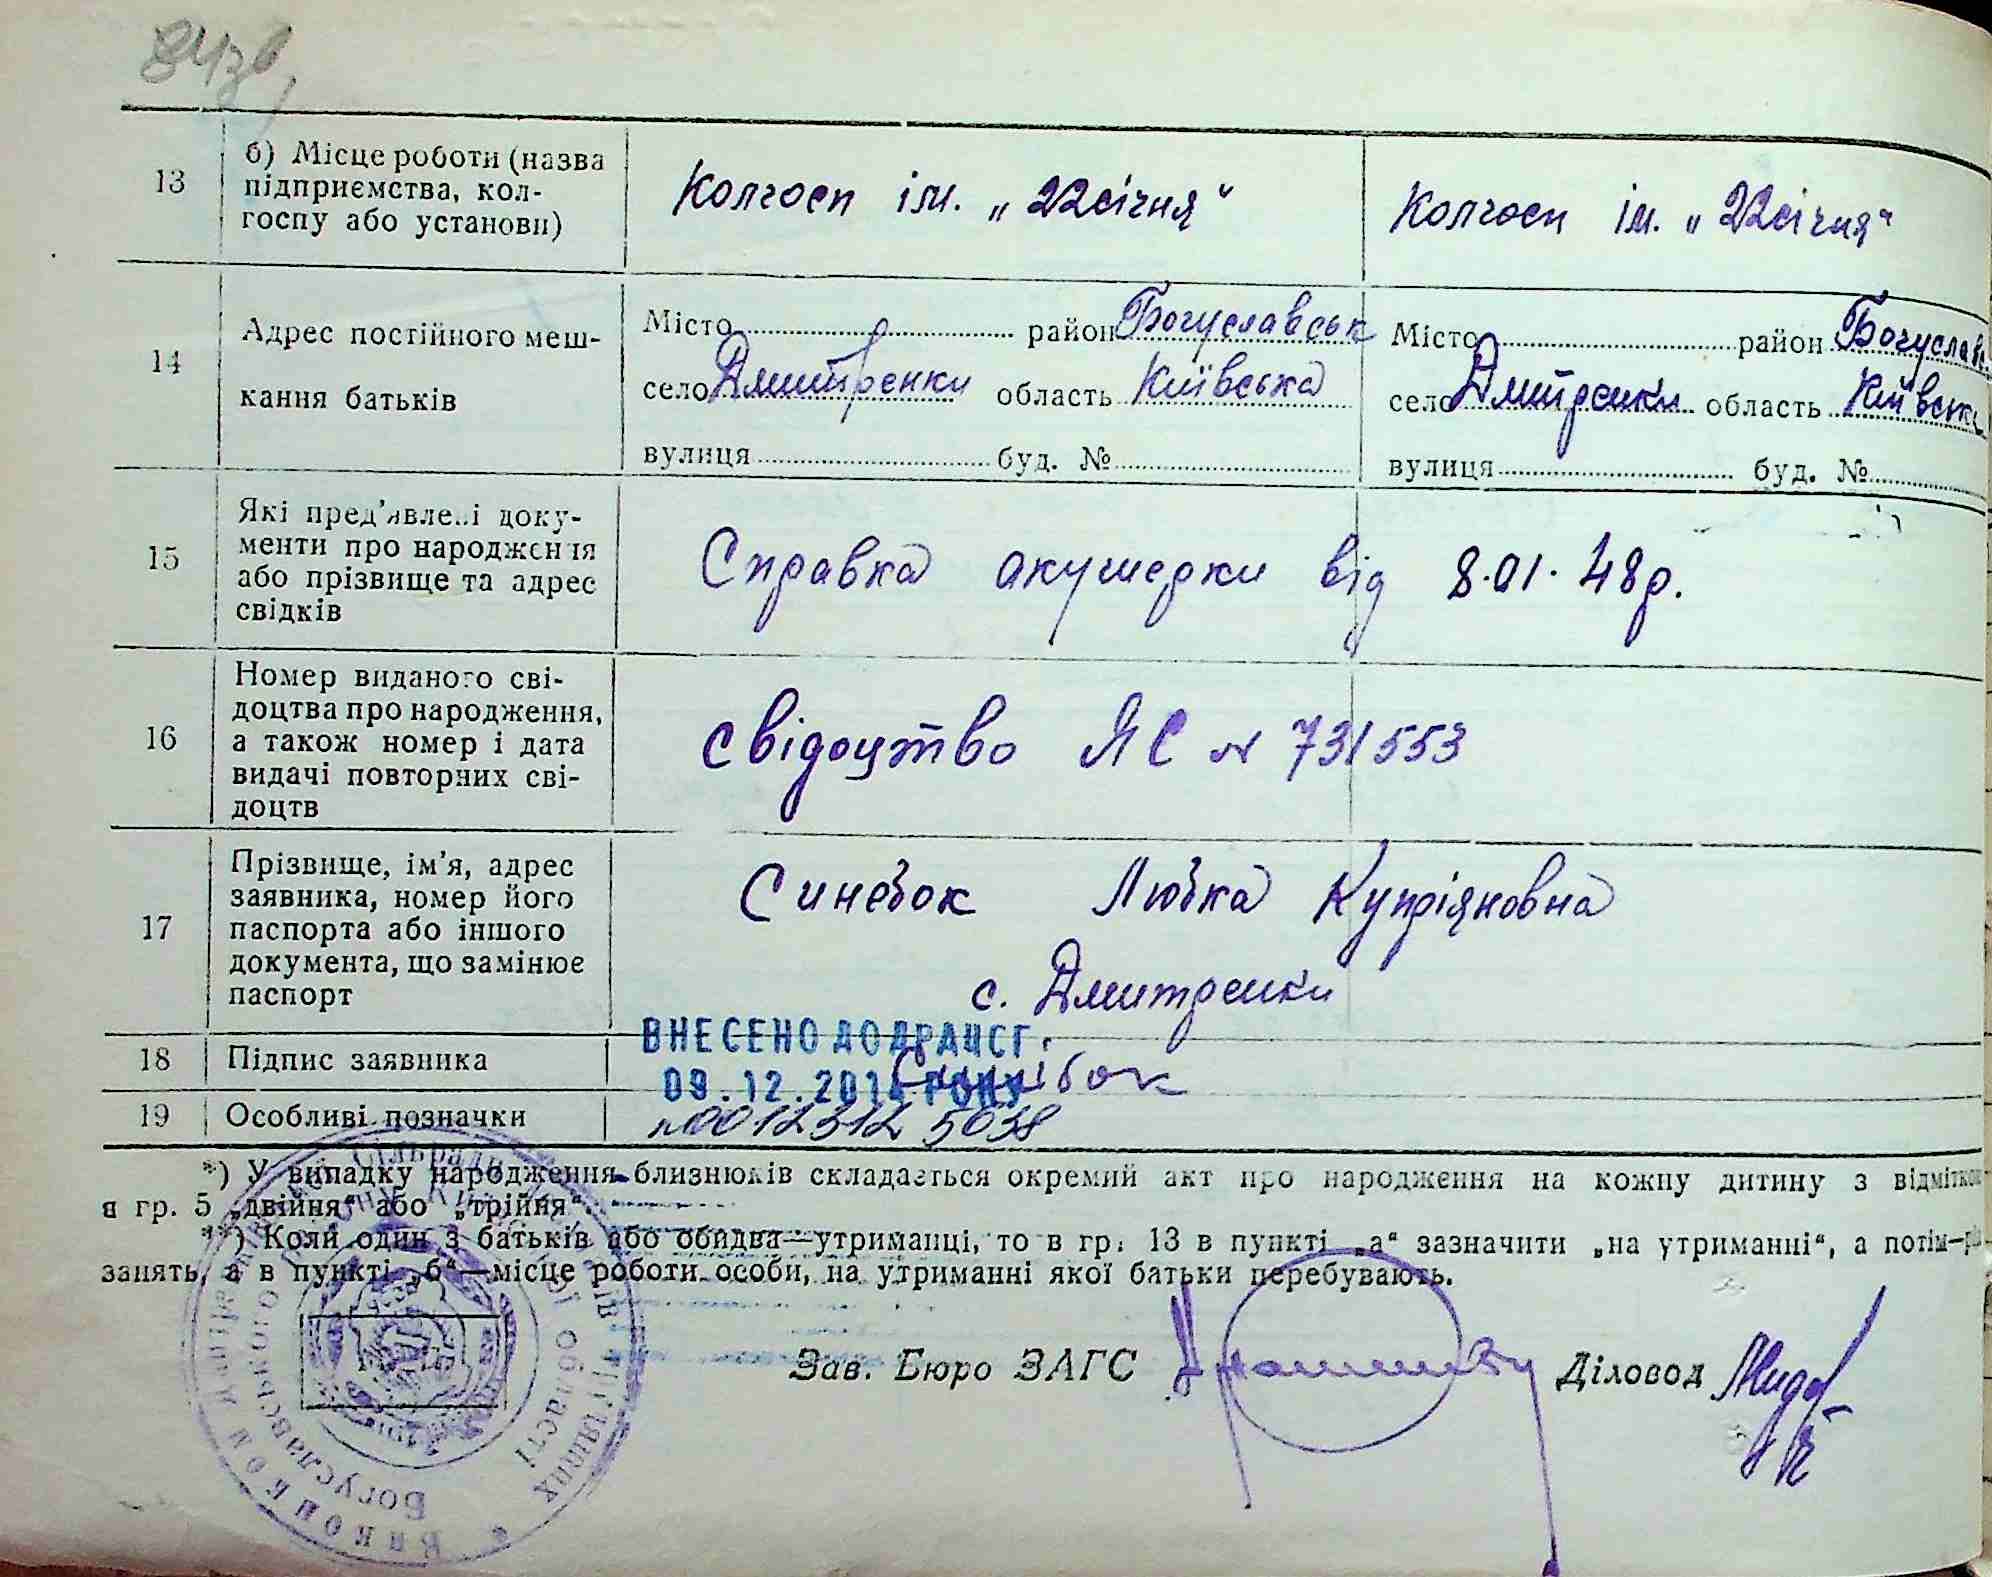 13
б) Місце роботи (назва
підприємства, кол-
госпу або установи)
Колгосп ім. „22 січня“
Колгосп ім. „22 січня“
14
Адрес постійного меш-
кання батьків
Місто район Богуславськ
село Дмитренки область Київська
вулиця буд. №
Місто район Богуславс.
село Дмитренки область Київськ
вулиця буд. №
15
Які пред’явлені доку-
менти про народження
або прізвище та адрес
свідків
Справка акушерки від 8.01.48р.
16
Номер виданого сві-
доцтва про народження,
а також номер і дата
видачі повторних сві-
доцтв
Свідоцтво ЯС № 731553
17
Прізвище, ім’я, адрес
заявника, номер його
паспорта або іншого
документа, що замінює
паспорт
Синебок Любка Купріяновна
с. Дмитренки
18
Підпис заявника
ВНЕСЕНО ДО ДРАЦСГ
09.12.2014 РОКУ
19
Особливі позначки
№00123125038
*) У випадку народження близнюків складається окремий акт про народження на кожну дитину з відміткою
в гр. 5 „двійня“ або „трійня“.
**) Коли один з батьків або обидва—утриманці, то в гр. 13 в пункті „а“ зазначити „на утриманні“, а потім—рід
занять, а в пункті „б“—місце роботи особи, на утриманні якої батьки перебувають.
Зав. Бюро ЗАГС
Діловод
Виконком
Богуславського
області